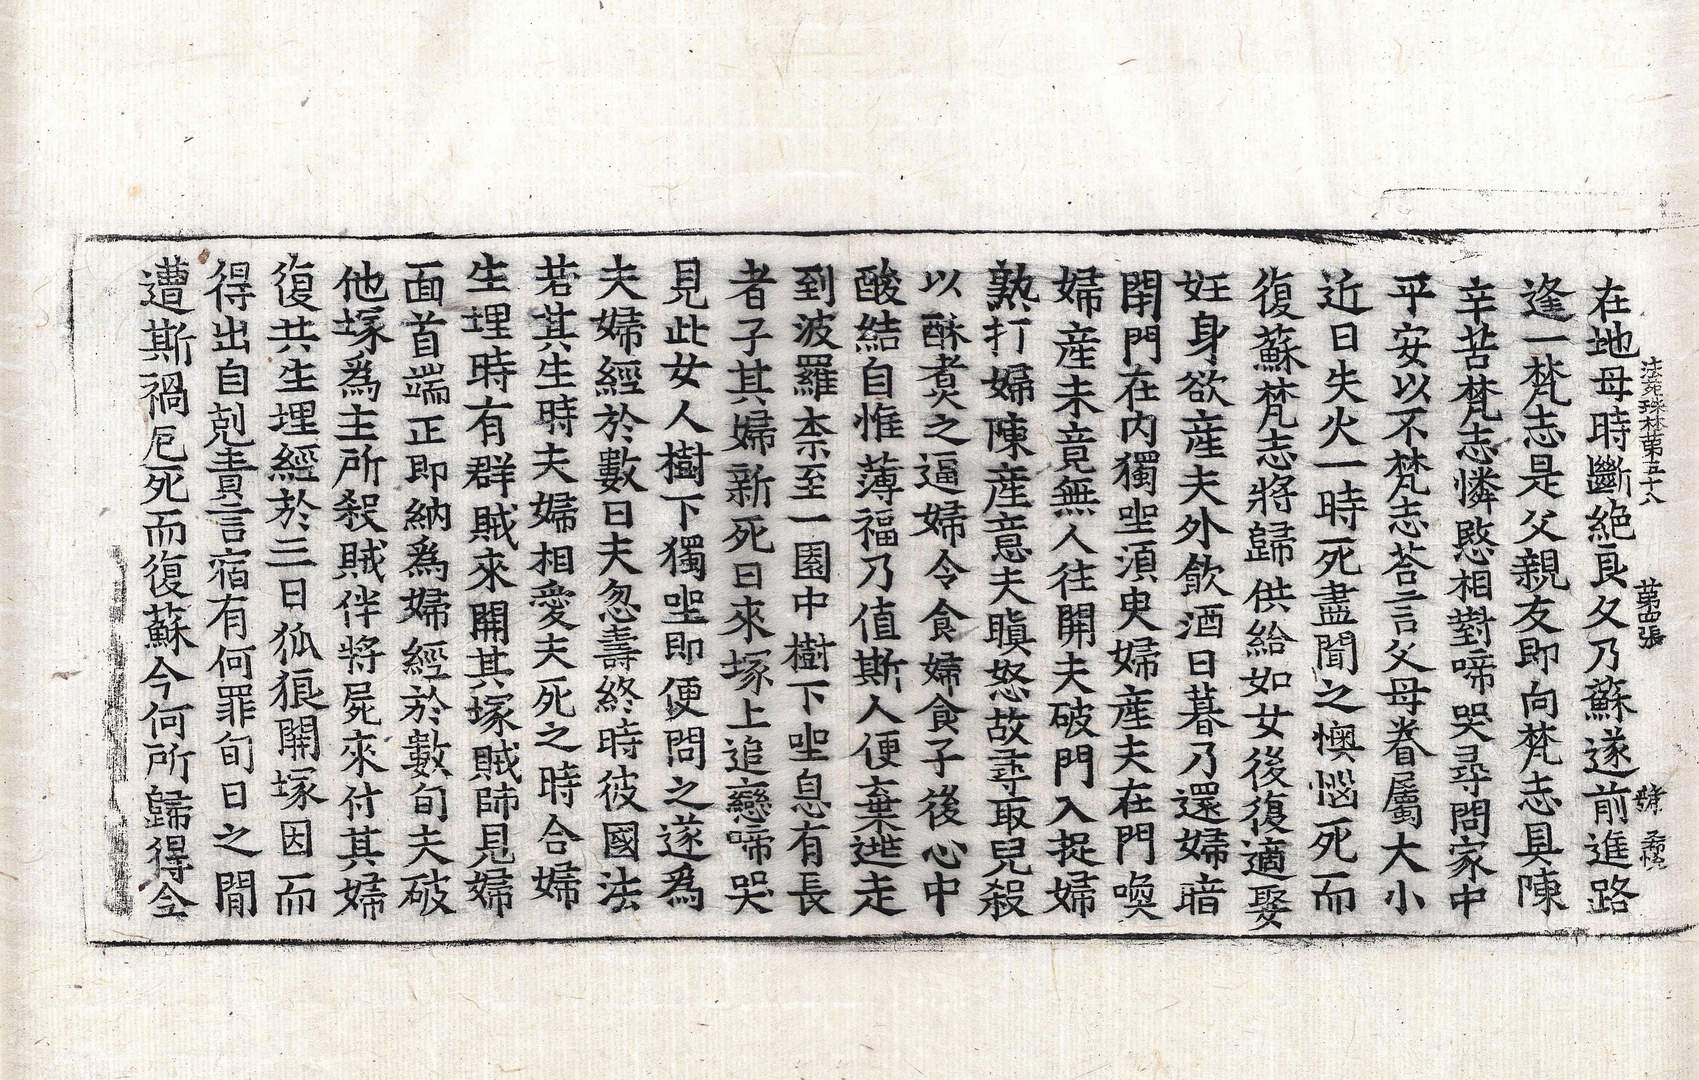 法苑珠林第五十八 第四張
在地母時斷絶良久乃蘇遂前進路
逢一梵志是父親友即向梵志具陳
辛苦梵志憐愍相對啼哭尋問家中
平安以不梵志荅言父母眷屬大小
近日失火一時死盡聞之懊惱死而
復蘇梵志將歸供給如女後復適娶
妊身欲産夫外飲酒日暮乃還婦暗
閉門在内獨坐須臾婦産夫在門喚
婦産未竟無人往開夫破門入捉婦
熟打婦陳産意夫瞋怒故尋取兒殺
以酥煑之逼婦令食婦食子後心中
酸結自惟薄福乃值斯人便棄逃走
到波羅柰至一園中樹下坐息有長
者子其婦新死日來塚上追戀啼哭
見此女人樹下獨坐即便問之遂爲
夫婦經於數日夫忽壽終時彼國法
若其生時夫婦相愛夫死之時合婦
生埋時有群賊來開其塚賊師見婦
面首端正即納爲婦經於數旬夫破
他塚爲主所殺賊伴將屍來付其婦
復共生埋經於三日狐狼開塚因而
得出自剋責言宿有何罪旬日之間
遭斯禍厄死而復蘇今何所歸得全